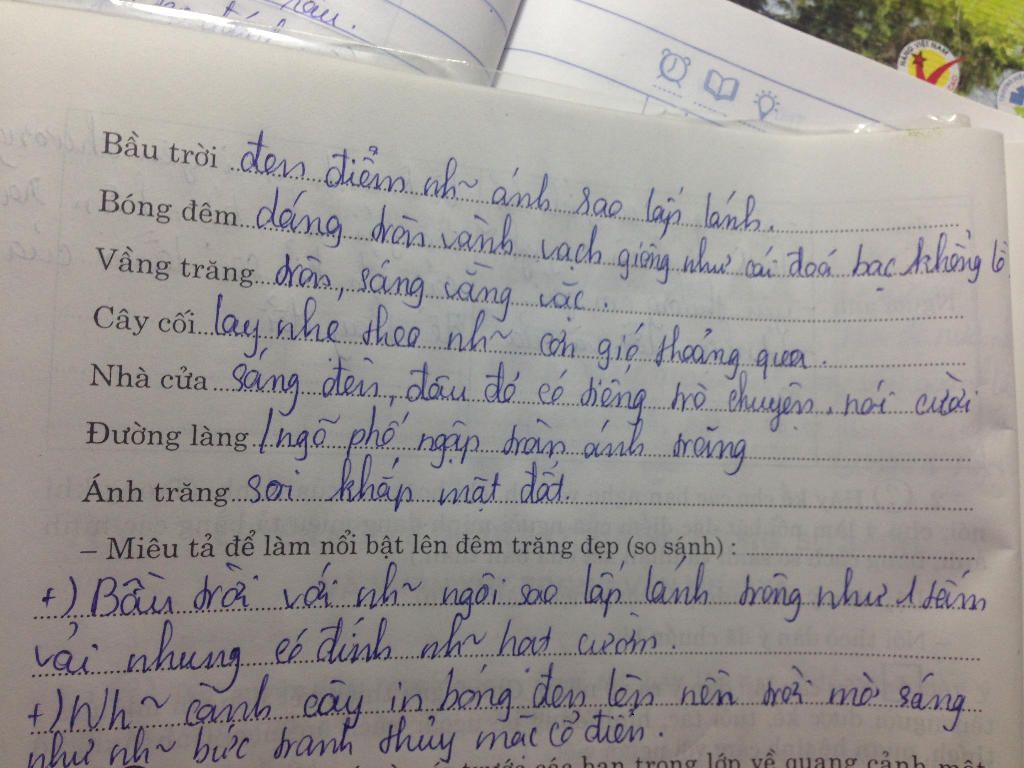 Bầu trời đen điểm nh~ ánh sao lấp lánh.
Bóng đêm dáng tròn vành vạch giống như cái đoá bạc khổng lồ
Vầng trăng tròn, sáng vằng vặc.
Cây cối lay nhẹ theo nh~ cơn gió thoảng qua.
Nhà cửa sáng đèn, đâu đó có tiếng trò chuyện, nói cười
Đường làng / ngõ phố ngập tràn ánh trăng
Ánh trăng soi khắp mặt đất.
– Miêu tả để làm nổi bật lên đêm trăng đẹp (so sánh) :
+) Bầu trời với nh~ ngôi sao lấp lánh trông như 1 tấm
vải nhung có đính nh~ hạt cườm.
+) Nh~ cành cây in bóng đen lên nền trời mờ sáng
như nh~ bức tranh thủy mặc cổ điển.
trước các bạn trong lớp về quang cảnh một
HÀNG VIỆT NAM